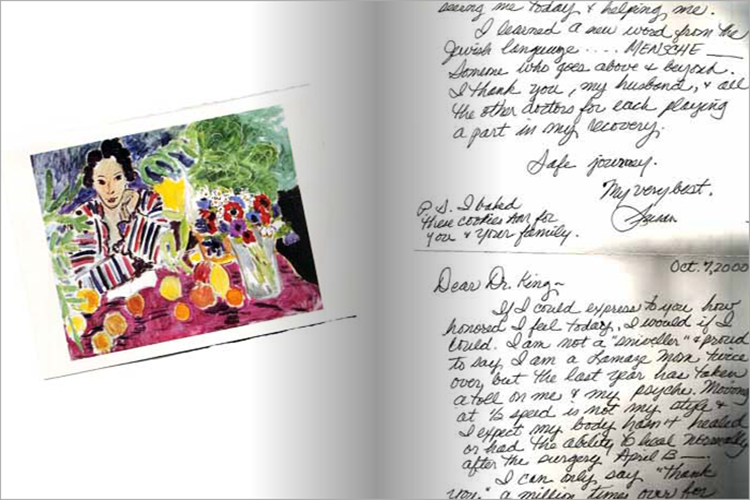 seeing me today & helping me.
I learned a new word from the
Jewish language .... MENSCHE —
Someone who goes above & beyond.
I thank you, my husband, & all
the other doctors for each playing
a part in my recovery.
Safe journey.
My very best,
Susan
P.S. I baked
these cookies for
you & your family.
Oct. 7, 2000
Dear Dr. King~
If I could express to you how
honored I feel today, I would if I
could. I am not a "sniveller" & proud
to say I am a Lamaze Mom twice
over but the last year has taken
a toll on me & my psyche. Moving
at ½ speed is not my style &
I expect my body hasn't healed
or had the ability to heal normally
after the surgery April
I can only say "thank
you," a million times over for